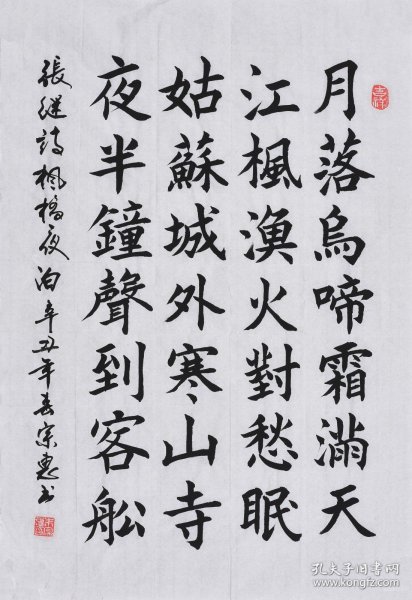 月落烏啼霜滿天
江楓漁火對愁眠
姑蘇城外寒山寺
夜半鐘聲到客船
張继詩楓橋夜泊辛丑年春宗惠书
吉祥
孔夫子旧书网